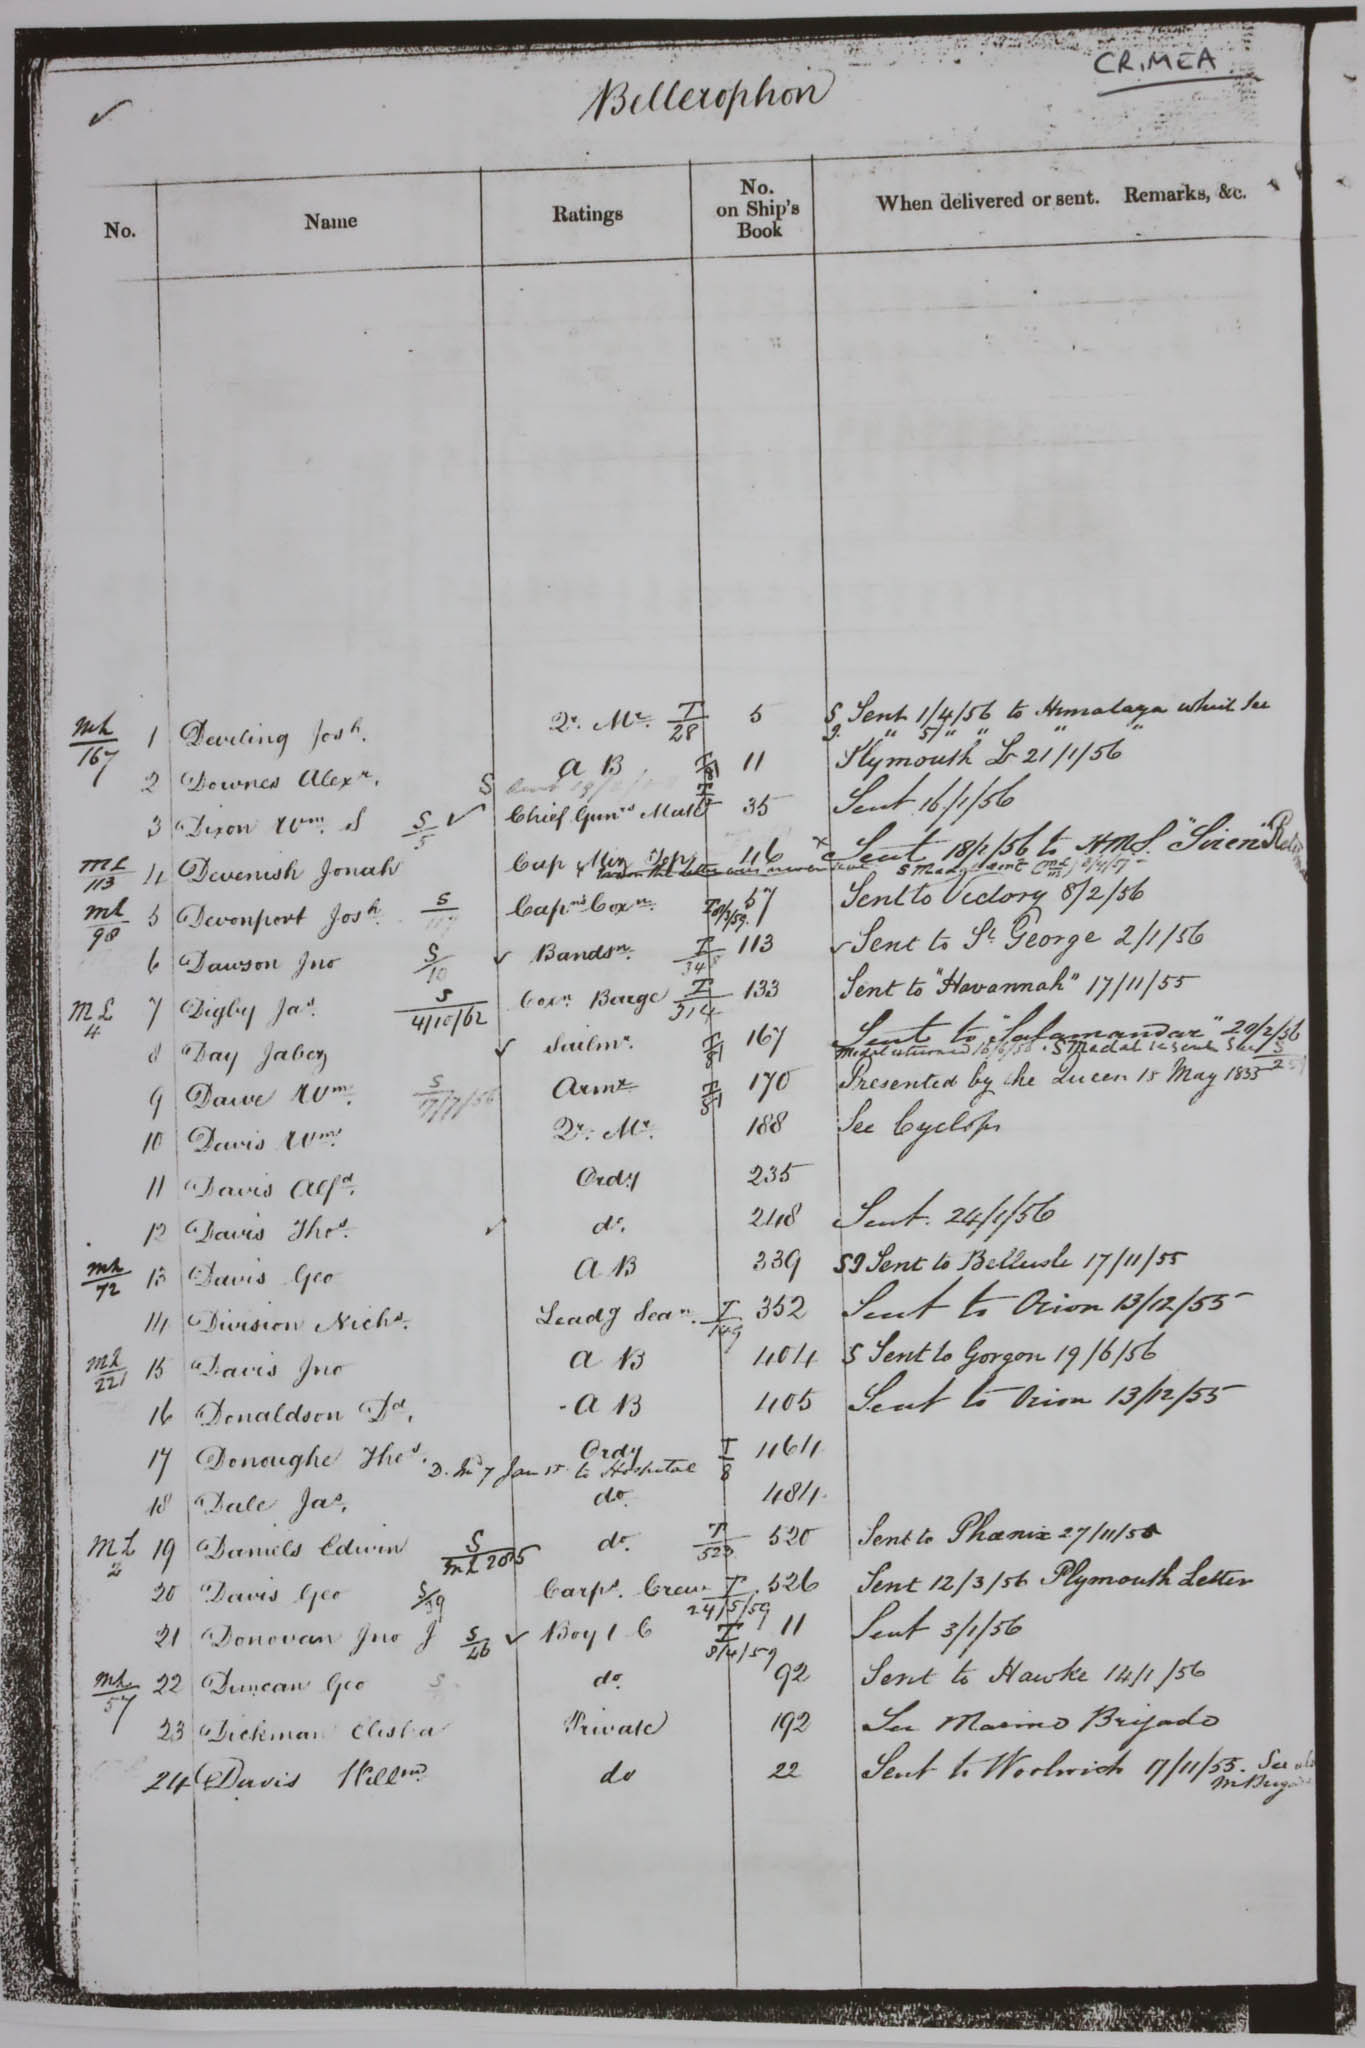 CRIMEA
Bellerophon
No. Name Ratings No. on Ship's Book When delivered or sent. Remarks, &c.
ML/167 1 Deviling Josh. Qr. Mr. T/28 5 S Sent 1/4/56 to Himalaya which see
2 Downes Alexr. A B 11 Plymouth Lr 21/1/56
3 Dixon Wm. S S/5 ✓ Chief Gunrs Mate 35 Sent 16/1/56
ML/113 4 Devenish Jonah Cap Miz Top 46 Sent 18/1/56 to H.M.S. "Siren"
ML/98 5 Devonport Josh. S Capns Coxn. 57 Sent to Victory 8/2/56
6 Dawson Jno S/10 ✓ Bandsn. T/348 113 ✓ Sent to St. George 2/1/56
ML/4 7 Digby Jas. S/4/10/62 Coxn Barge T/314 133 Sent to "Havannah" 17/11/55
8 Day Jabez ✓ Sailmr. 167 Sent to "Salamander" 20/2/56
9 Dawe Wm. S/17/7/56 Armr 170 Presented by the Queen 18 May 1855
10 Davis Wm. Qr. Mr. 188 See Cyclops
11 Davis Alfd. Ordy 235
12 Davis Thos. ✓ do. 248 Sent. 24/1/56
ML/72 13 Davis Geo A B 339 Sent to Belleisle 17/11/55
14 Division Nichs. Leadg Sean. T/149 352 Sent to Orion 13/12/55
ML/221 15 Davis Jno A B 404 S Sent to Gorgon 19/6/56
16 Donaldson Dd. A B 405 Sent to Orion 13/12/55
17 Donoughe Thos. Ordy T/8 464
to Hospital
18 Dale Jas. do. 484
ML/2 19 Daniels Edwin S/ML 205 do. T/523 520 Sent to Phœnix 27/11/55
20 Davis Geo S/39 Carps. Crew T/24/5/59 526 Sent 12/3/56 Plymouth Letter
21 Donovan Jno J S/26 ✓ Boy 1 C T/8/4/59 11 Sent 3/1/56
ML/57 22 Duncan Geo S do. 92 Sent to Hawke 14/1/56
23 Dickman Elisha Private 192 See Marine Brigade
24 Davis Willm do 22 Sent to Woolwich 17/11/55. See